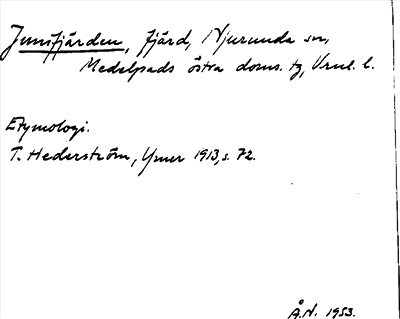 Junifjärden, fjärd, Njurunda sn,
Medelpads östra doms. tg, Vrnl. l.
Etymologi.
T. Hederström, Ymer 1913, s. 72.
Å.N. 1953.